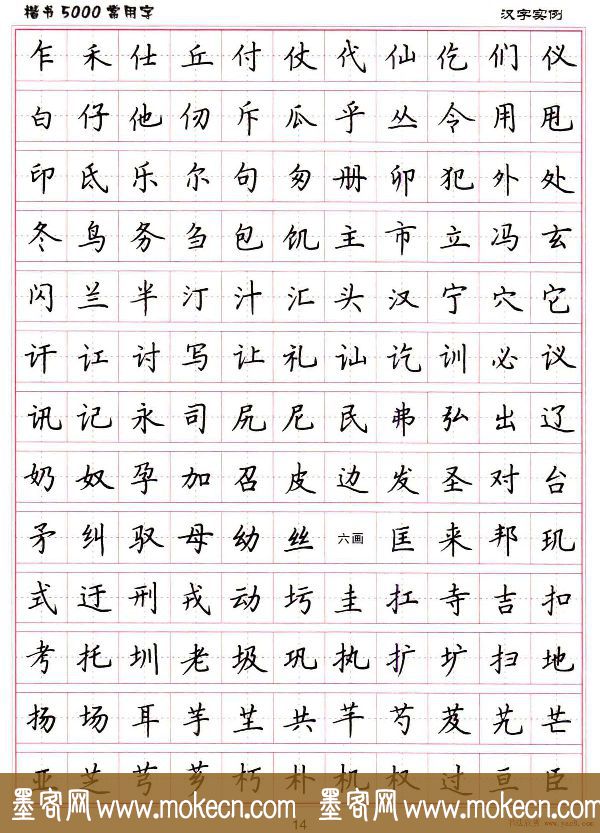 楷书5000常用字 汉字实例
乍 禾 仕 丘 付 仗 代 仙 仡 们 仪
白 仔 他 仞 斥 瓜 乎 丛 令 用 甩
印 氐 乐 尔 句 匆 册 卯 犯 外 处
冬 鸟 务 刍 包 饥 主 市 立 冯 玄
闪 兰 半 汀 汁 汇 头 汉 宁 穴 它
讦 讧 讨 写 让 礼 讪 讫 训 必 议
讯 记 永 司 尻 尼 民 弗 弘 出 辽
奶 奴 孕 加 召 皮 边 发 圣 对 台
矛 纠 驭 母 幼 丝 六画 匡 来 邦 玑
式 迂 刑 戎 动 圬 圭 扛 寺 吉 扣
考 托 圳 老 圾 巩 执 扩 圹 扫 地
扬 场 耳 芋 芏 共 芊 芍 芨 艽 芒
亚 芝 芎 芗 朽 朴 机 权 过 亘 臣
墨客网 www.mokecn.com 墨客网 www.mokecn.com
14